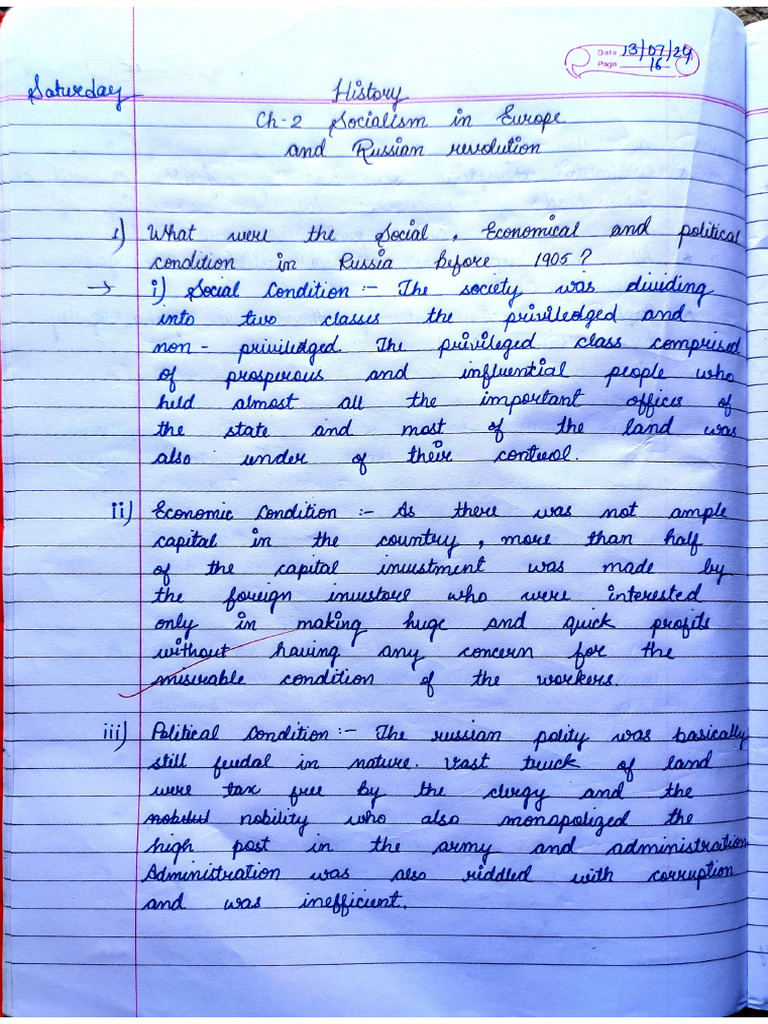 Date 13/07/24
Page 16
Saturday
History
Ch-2 Socialism in Europe
and Russian revolution
1) What were the Social, Economical and political
condition in Russia before 1905?
→ i) Social Condition :- The society was dividing
into two classes the priviledged and
non - priviledged. The privileged class comprised
of prosperous and influential people who
held almost all the important offices of
the state and most of the land was
also under of their control.
ii) Economic Condition :- As there was not ample
capital in the country, more than half
of the capital inuestment was made by
the foreign inuestors who were interested
only in making huge and quick profits
without having any concern for the
miserable condition of the workers.
iii) Political Condition :- The russian polity was basically
still feudal in nature. Vast truck of land
were tax free by the clergy and the
nobility who also monapolized the
high post in the army and administration
Administration was also riddled with corruption
and was inefficient.